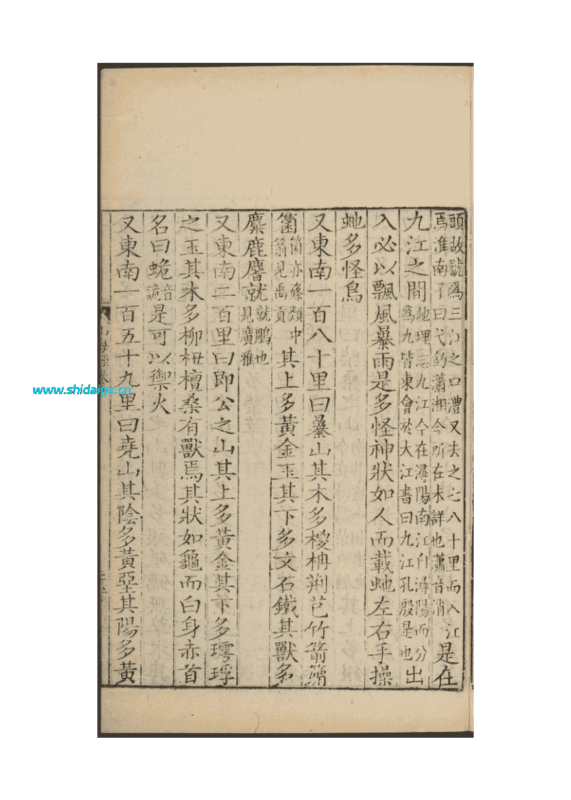 頭故號為三江之口澧又去之七八十里而入江
焉淮南子曰弋釣瀟湘今所在未詳也瀟音消是在
九江之間地理志九江今在潯陽南江自潯陽而分
為九皆東會於大江書曰九江孔殷是也出
入必以飄風暴雨是多怪神狀如人而載虵左右手操
虵多怪鳥
又東南一百八十里曰暴山其木多椶枬荊芑竹箭䉋
箘箘亦篠類中箭見禹貢其上多黃金玉其下多文石鐵其獸多
麋鹿𪊨就就鵰也見廣雅
又東南二百里曰即公之山其上多黃金其下多㻬琈
之玉其木多柳杻檀桑有獸焉其狀如龜而白身赤首
名曰蛫音詭是可以禦火
又東南一百五十九里曰堯山其陰多黃堊其陽多黃